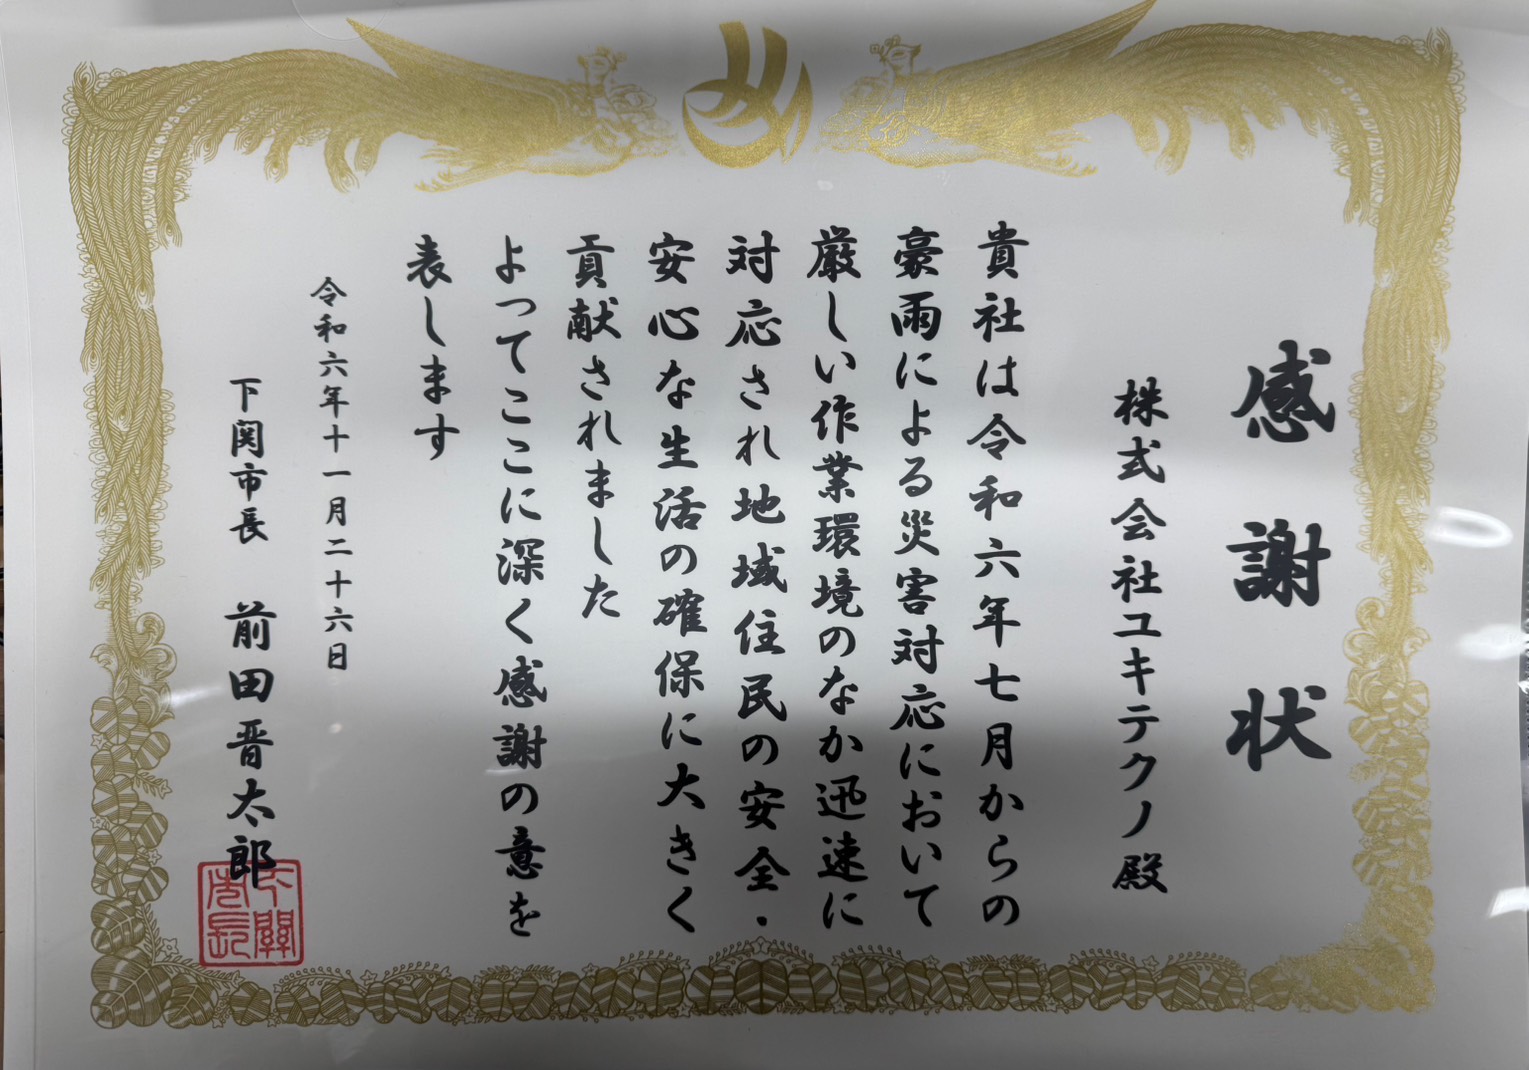 感謝状
株式会社ユキテクノ殿
貴社は令和六年七月からの
豪雨による災害対応において
厳しい作業環境のなか迅速に
対応され地域住民の安全・
安心な生活の確保に大きく
貢献されました
よってここに深く感謝の意を
表します
令和六年十一月二十六日
下関市長 前田晋太郎
下關
市長